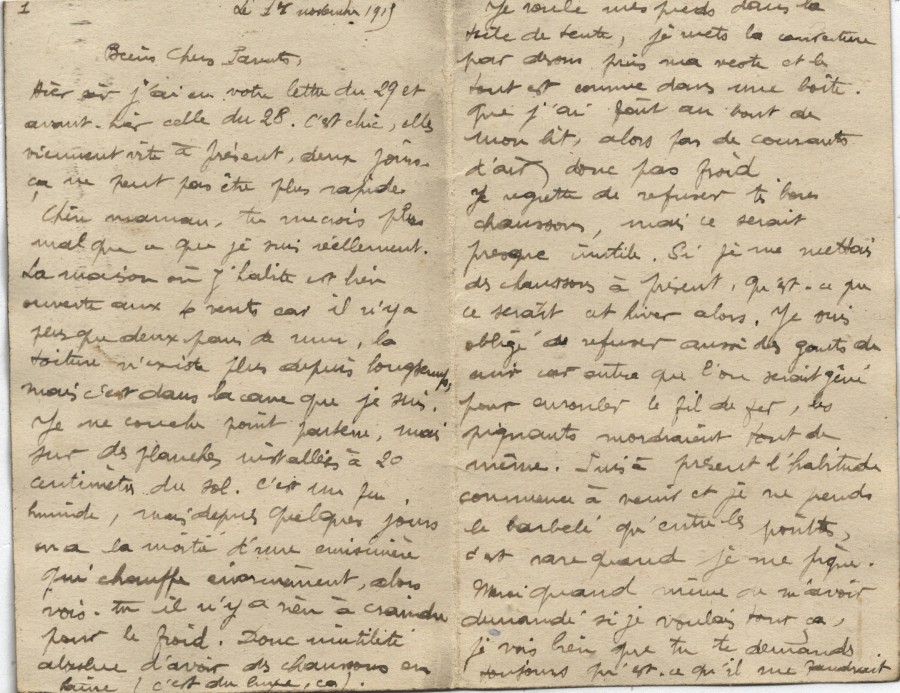 1
Le 1er novembre 1915
Biens Chers Parents,
Hier soir j'ai eu votre lettre du 29 et
avant-hier celle du 28. C'est chic, elles
viennent vite à présent, deux jours
ça ne peut pas être plus rapide
Chère maman, tu me crois plus
mal que ce que je suis réellement.
La maison où j'habite est bien
ouverte aux 4 vents car il n'y a
plus que deux pans de mur, la
toiture n'existe plus depuis longtemps,
mais c'est dans la cave que je suis.
Je ne couche point par terre, mais
sur des planches installées à 20
centimètres du sol. C'est un peu
humide, mais depuis quelques jours
on a la moitié d'une cuisinière
qui chauffe énormément, alors
vois-tu il n'y a rien à craindre
pour le froid. Donc inutilité
absolue d'avoir des chaussons en
laine (c'est du luxe, ça).
Je roule mes pieds dans la
toile de tente, je mets la couverture
par dessus puis ma veste et le
tout est comme dans une boîte.
que j'ai fait au bout de
mon lit, alors pas de courants
d'air, donc pas froid
Je regrette de refuser tes bons
chaussons, mais ce serait
presque inutile. Si je me mettais
des chaussons à présent, qu'est-ce que
ce serait cet hiver alors. Je suis
obligé de refuser aussi des gants de
cuir car outre que l'on serait gêné
pour enrouler le fil de fer, les
piquants mordraient tout de
même. Puis à présent l'habitude
commence à venir et je ne prends
le barbelé qu'entre les pointes,
c'est rare quand je me pique.
Merci quand même de m'avoir
demandé si je voulais tout ça,
je vois bien que tu te demandes
toujours qu'est-ce qu'il me faudrait